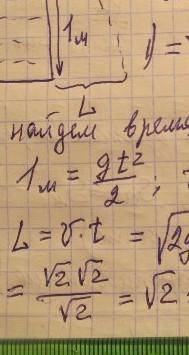 1м
1) =
L
найдем время
1м = gt²/2 ;
L = v·t = √2g
= √2 √2/√2 = √2